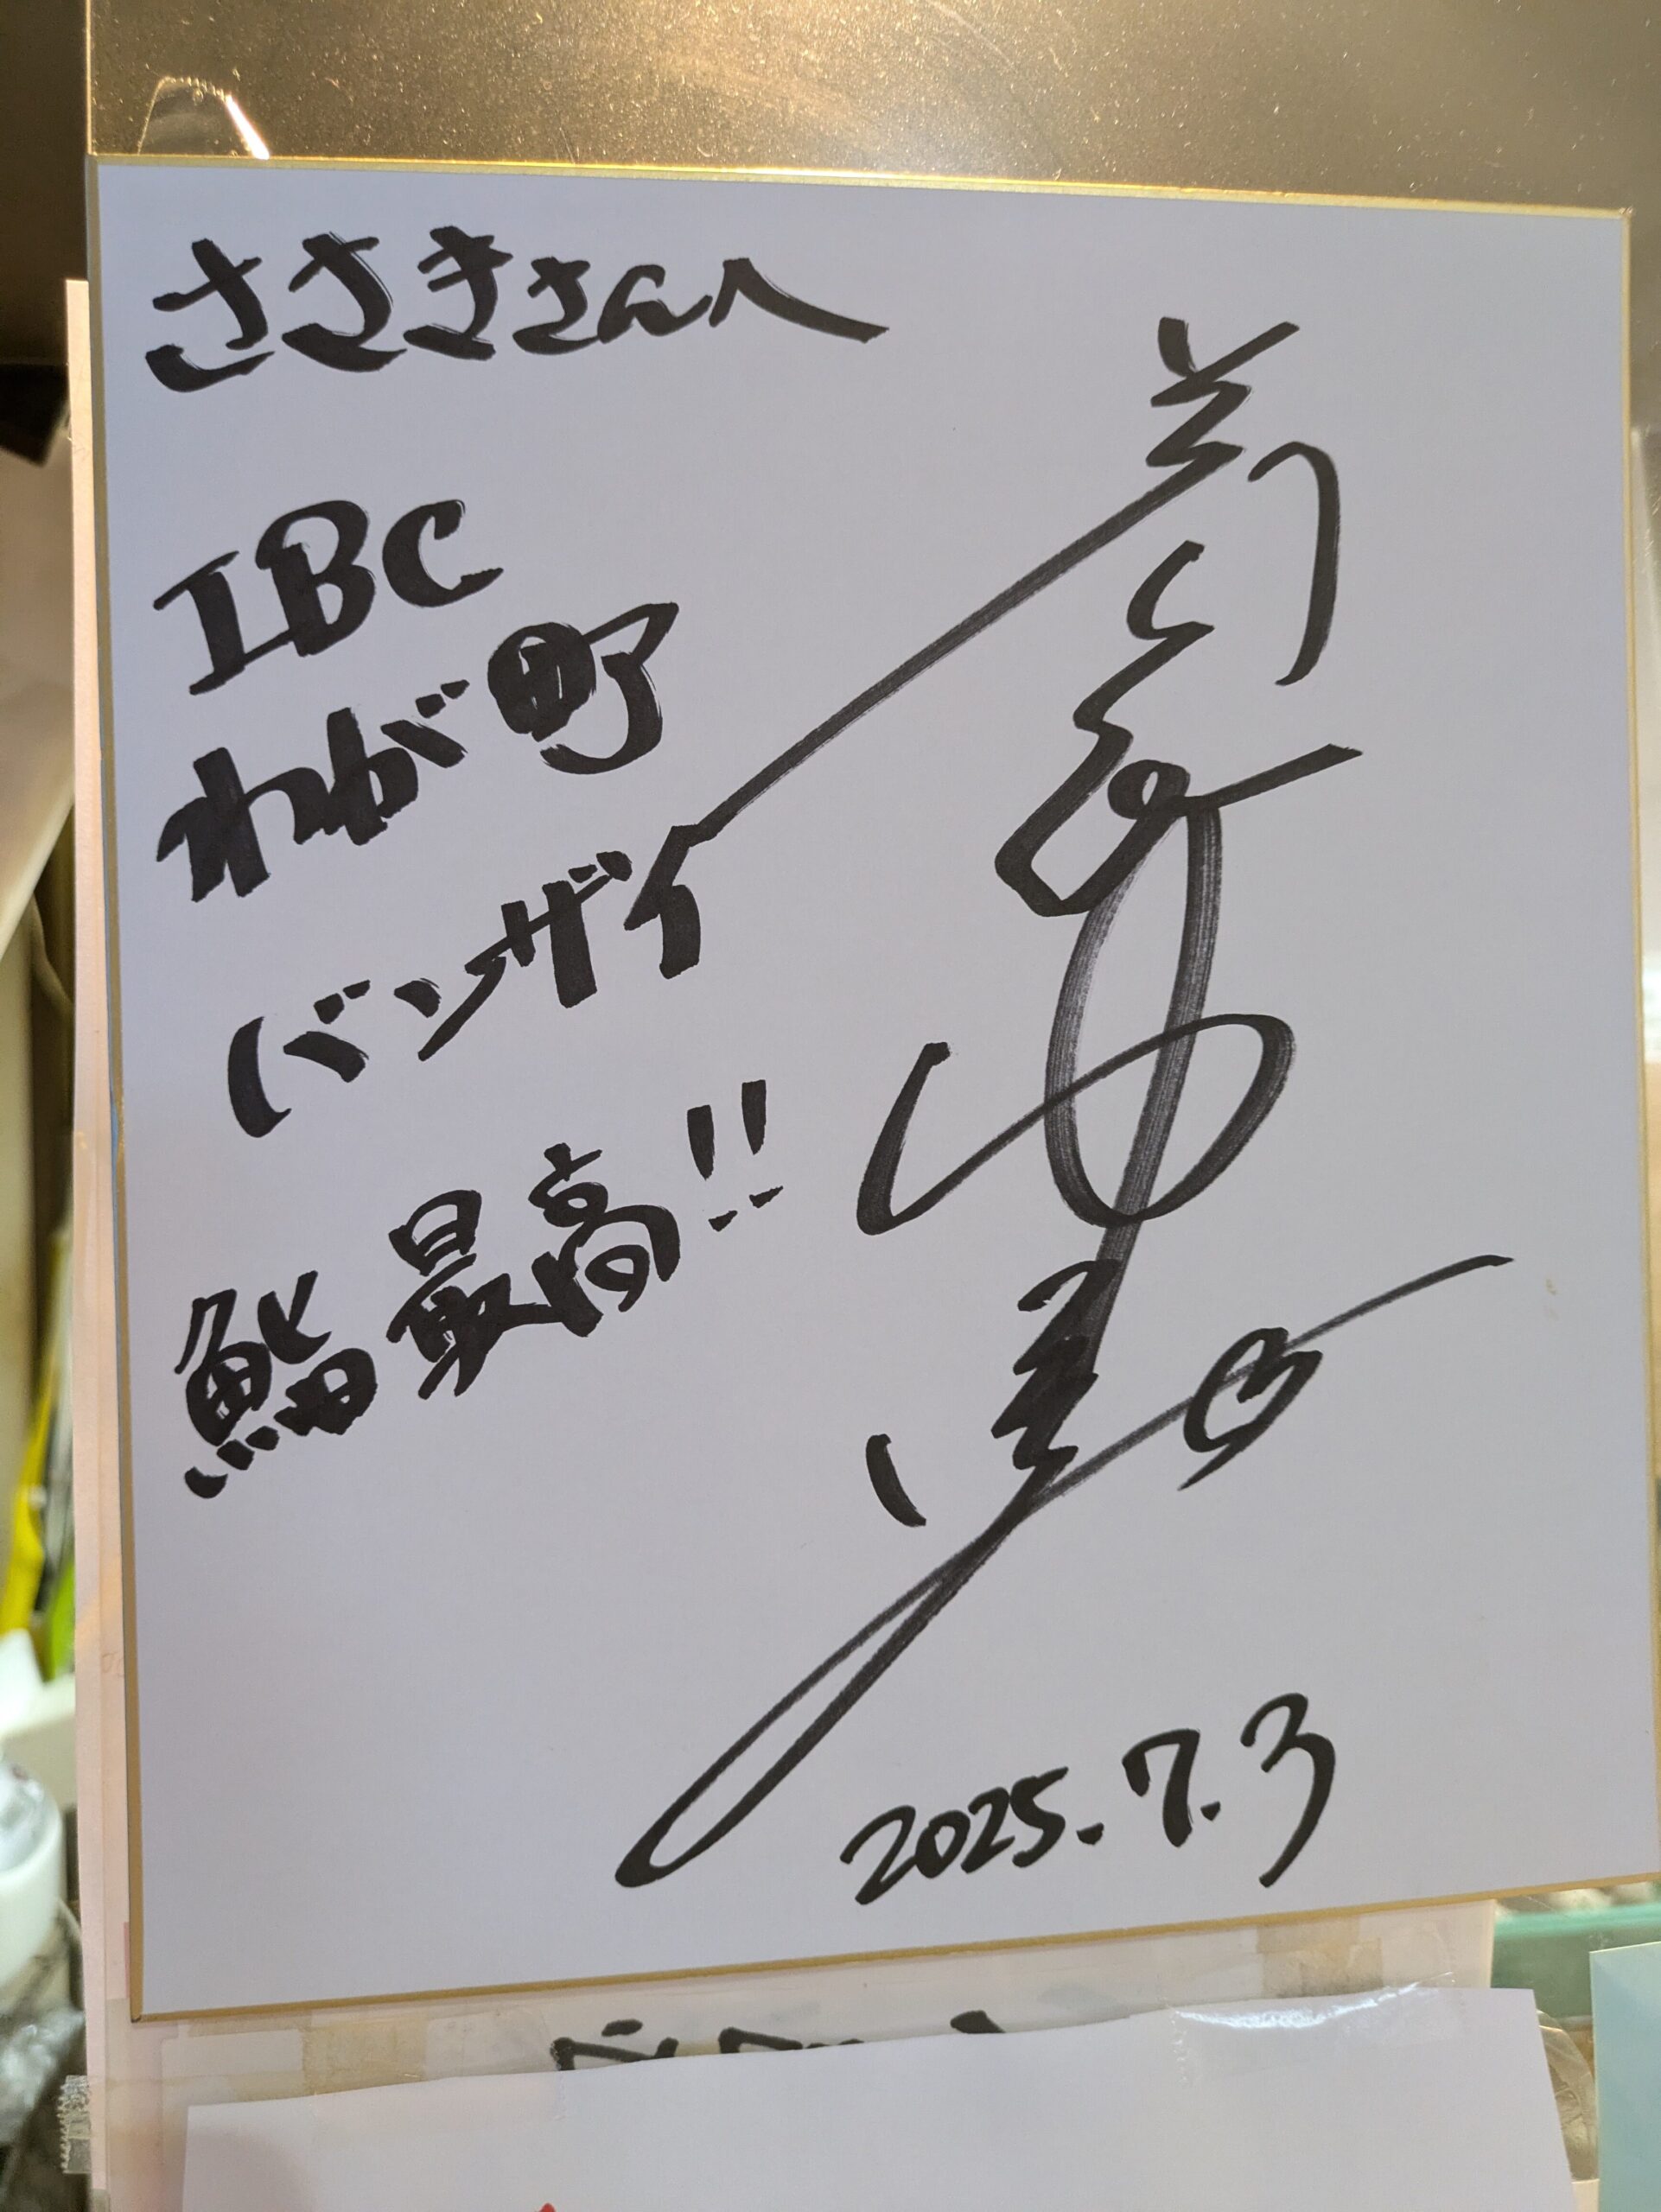 ささきさんへ
IBC
わが町
バンザイ
鮨最高!!
2025.7.3